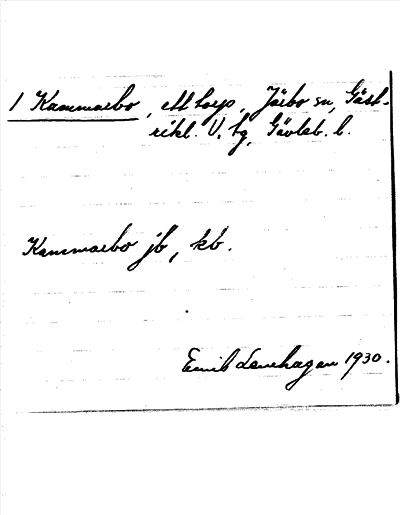 1 Kammaebo, ett torp, Järbo sn, Gäst-
rikl. V. tg, Gävleb. l.
Kammaebo jb, kb.
Emil Lenehagen 1930.